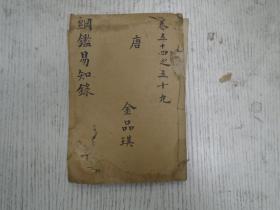 卷五十四之五十九
唐
金品琪
綱鑑易知錄